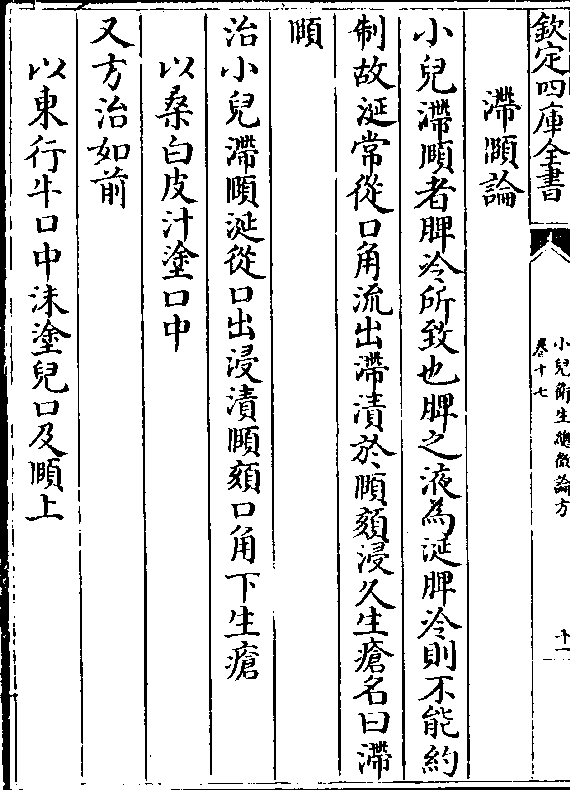 欽定四庫全書
小兒衛生總微論方
卷十七
十一
滯頤論
小兒滯頤者脾冷所致也脾之液為涎脾冷則不能約
制故涎常從口角流出滯漬於頤頦浸久生瘡名曰滯
頤
治小兒滯頤涎從口出浸漬頤頦口角下生瘡
以桑白皮汁塗口中
又方治如前
以東行牛口中沫塗兒口及頤上